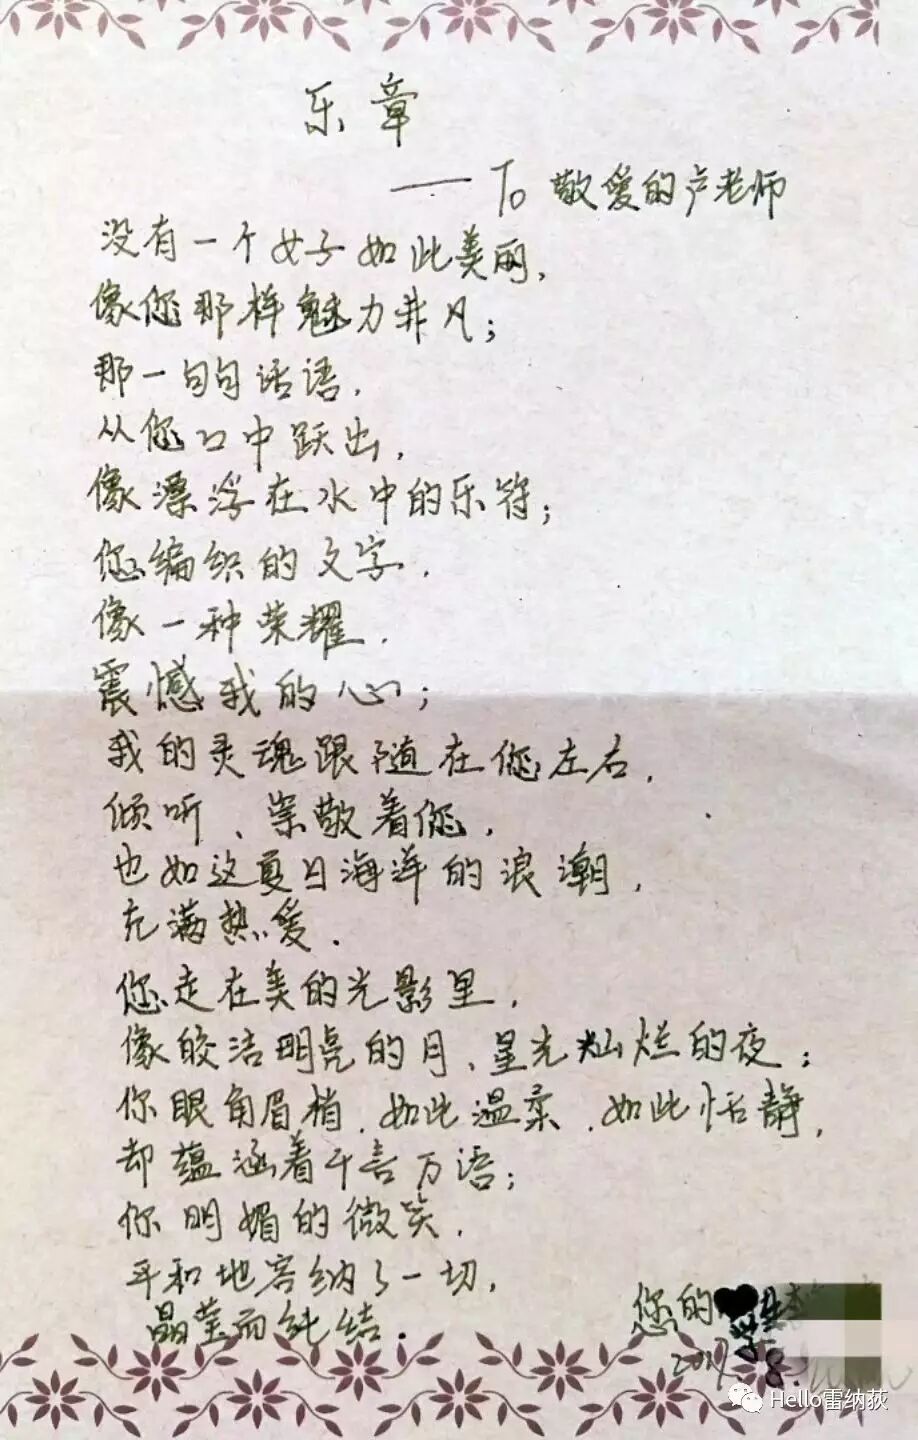 乐章
——To 敬爱的卢老师
没有一个女子如此美丽,
像您那样魅力非凡;
那一句句话语,
从您口中跃出,
像漂浮在水中的乐符;
您编织的文字,
像一种荣耀,
震憾我的心;
我的灵魂跟随在您左右,
倾听、崇敬着您,
也如这夏日海洋的浪潮,
充满热爱.
您走在美的光影里,
像皎洁明亮的月、星光灿烂的夜;
你眼角眉梢,如此温柔,如此恬静,
却蕴涵着千言万语;
你明媚的微笑,
平和地容纳了一切,
晶莹而纯洁.
您的♥
2017 8.
Hello雷纳荻